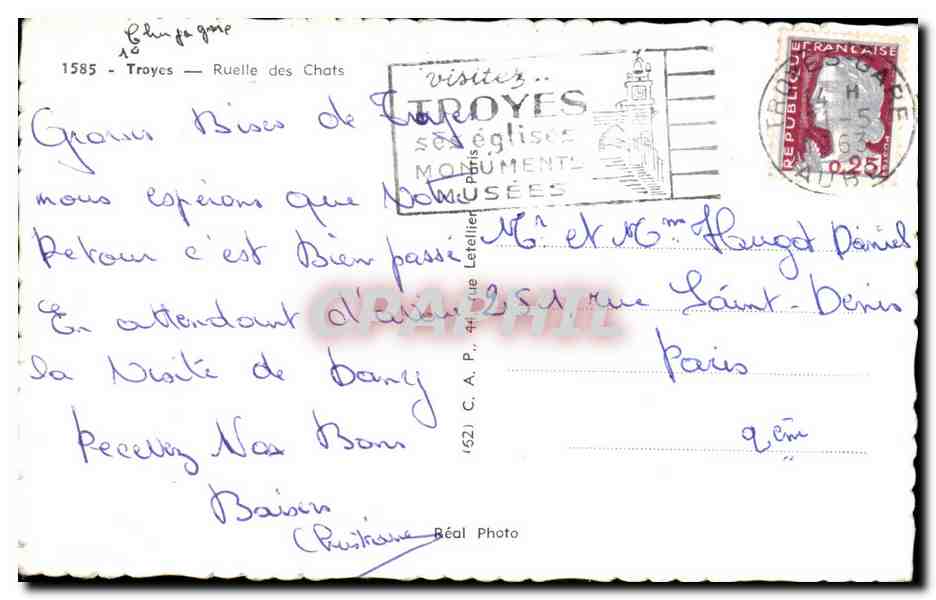 Champagne
10
1585 - Troyes — Ruelle des Chats
visitez..
TROYES
ses églises
MONUMENTS
MUSÉES
TROYES GARE
AUBE
REPUBLIQUE FRANÇAISE
0,25
POSTES
Grosses Bises de Troyes
nous espérons que Votre
Retour c'est Bien passé
En attendant d'avoir
la Visité de Dany
Recevez Nos Bons
Baisers
Christiane
(62) C. A. P., 44, rue Letellier, Paris
Mr et Mme Haugot Daniel
251, rue Saint-Denis
Paris
2ème
Réal Photo
CPARPHIL